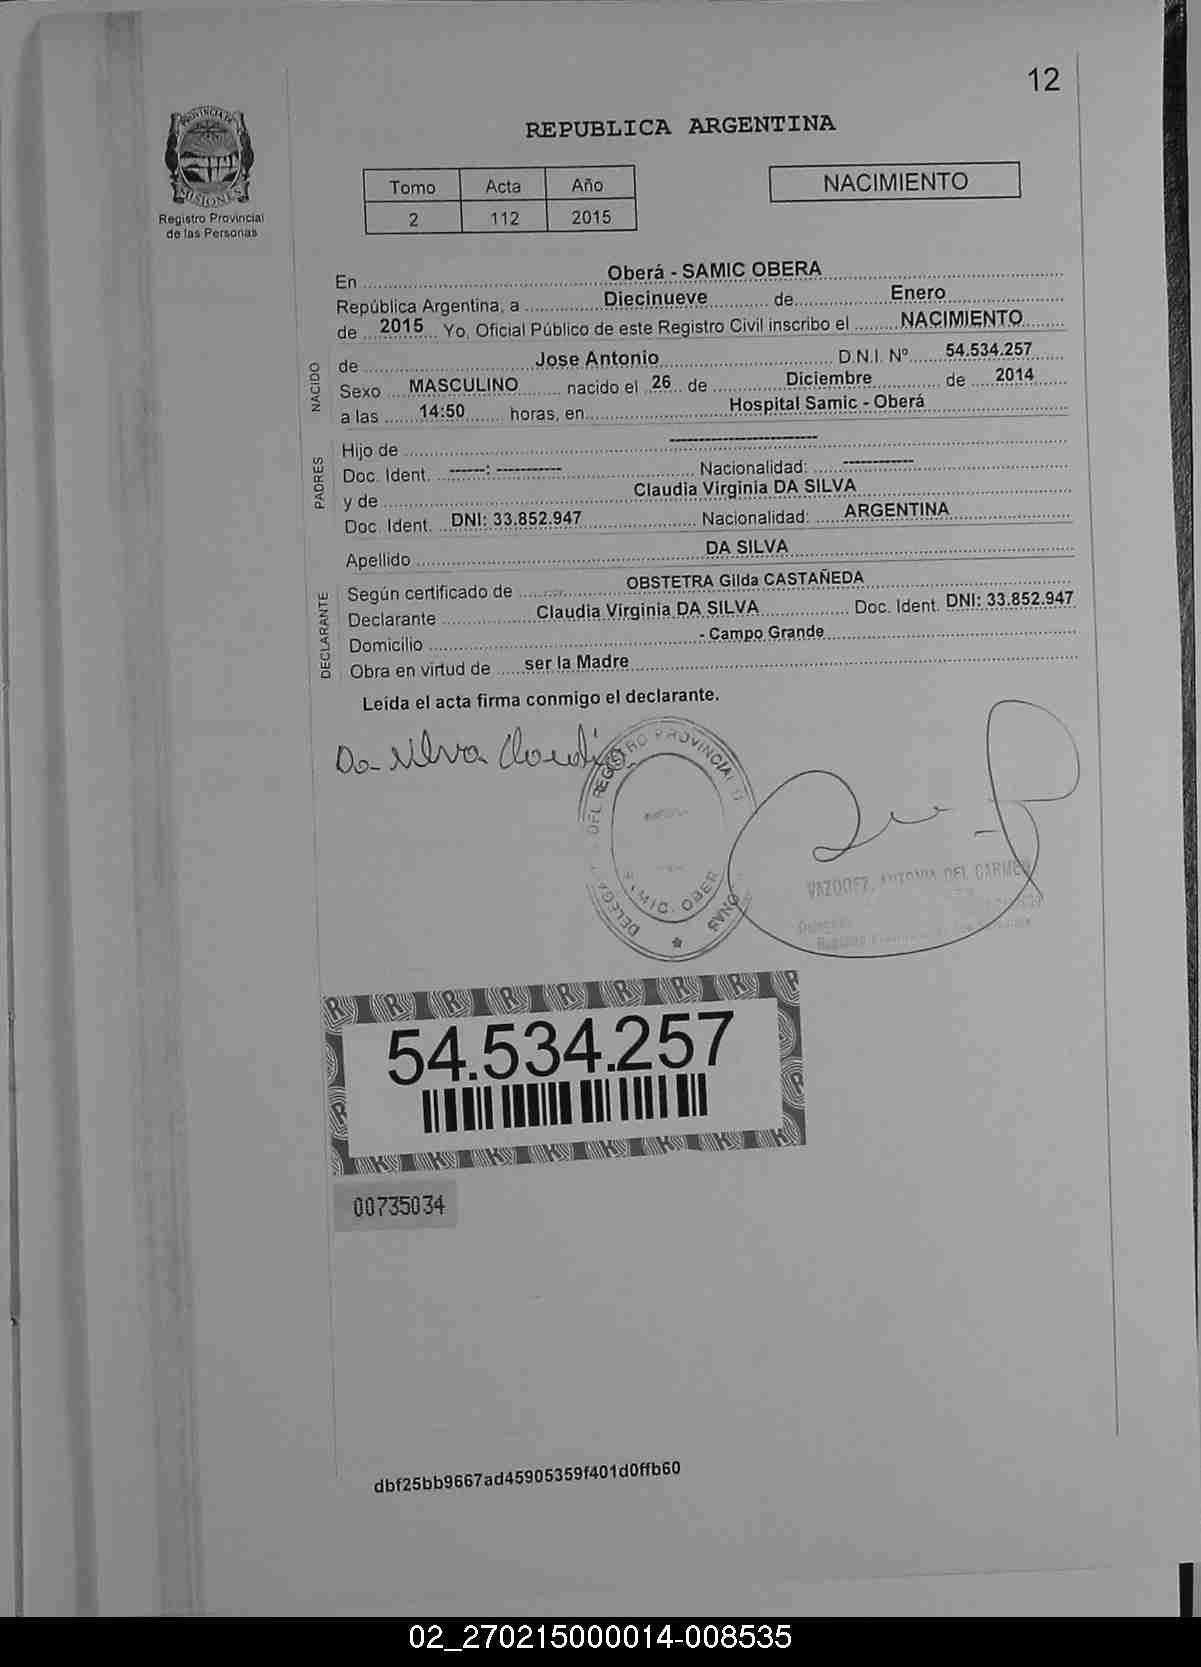 12
PROVINCIA DE
MISIONES
Registro Provincial
de las Personas
REPUBLICA ARGENTINA
Tomo Acta Año
2 112 2015
NACIMIENTO
En Oberá - SAMIC OBERA
República Argentina, a Diecinueve de Enero
de 2015 Yo, Oficial Público de este Registro Civil inscribo el NACIMIENTO
NACIDO
de Jose Antonio D.N.I. Nº 54.534.257
Sexo MASCULINO nacido el 26 de Diciembre de 2014
a las 14:50 horas, en Hospital Samic - Oberá
PADRES
Hijo de -------------------------
Doc. Ident. ------: ----------- Nacionalidad: ------------
y de Claudia Virginia DA SILVA
Doc. Ident. DNI: 33.852.947 Nacionalidad: ARGENTINA
Apellido DA SILVA
DECLARANTE
Según certificado de OBSTETRA Gilda CASTAÑEDA
Declarante Claudia Virginia DA SILVA Doc. Ident. DNI: 33.852.947
Domicilio - Campo Grande
Obra en virtud de ser la Madre
Leída el acta firma conmigo el declarante.
Da Silva Claudia
DEL REGISTRO PROVINCIAL
VAZQUEZ, ANTONIA DEL CARMEN
54.534.257
00735034
dbf25bb9667ad45905359f401d0ffb60
02_270215000014-008535